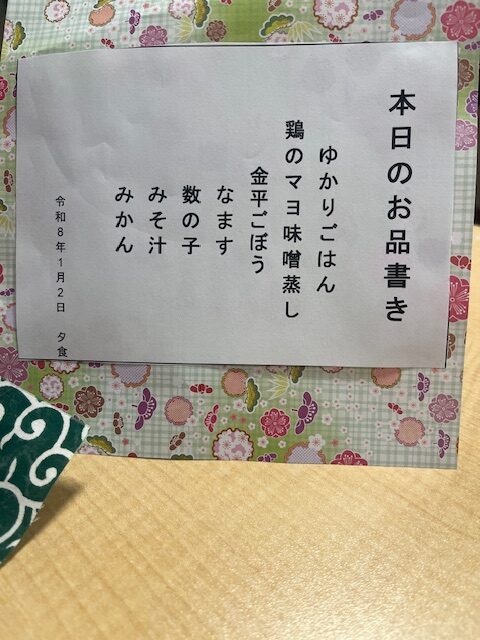 本日のお品書き
ゆかりごはん
鶏のマヨ味噌蒸し
金平ごぼう
なます
数の子
みそ汁
みかん
令和8年1月2日 夕食